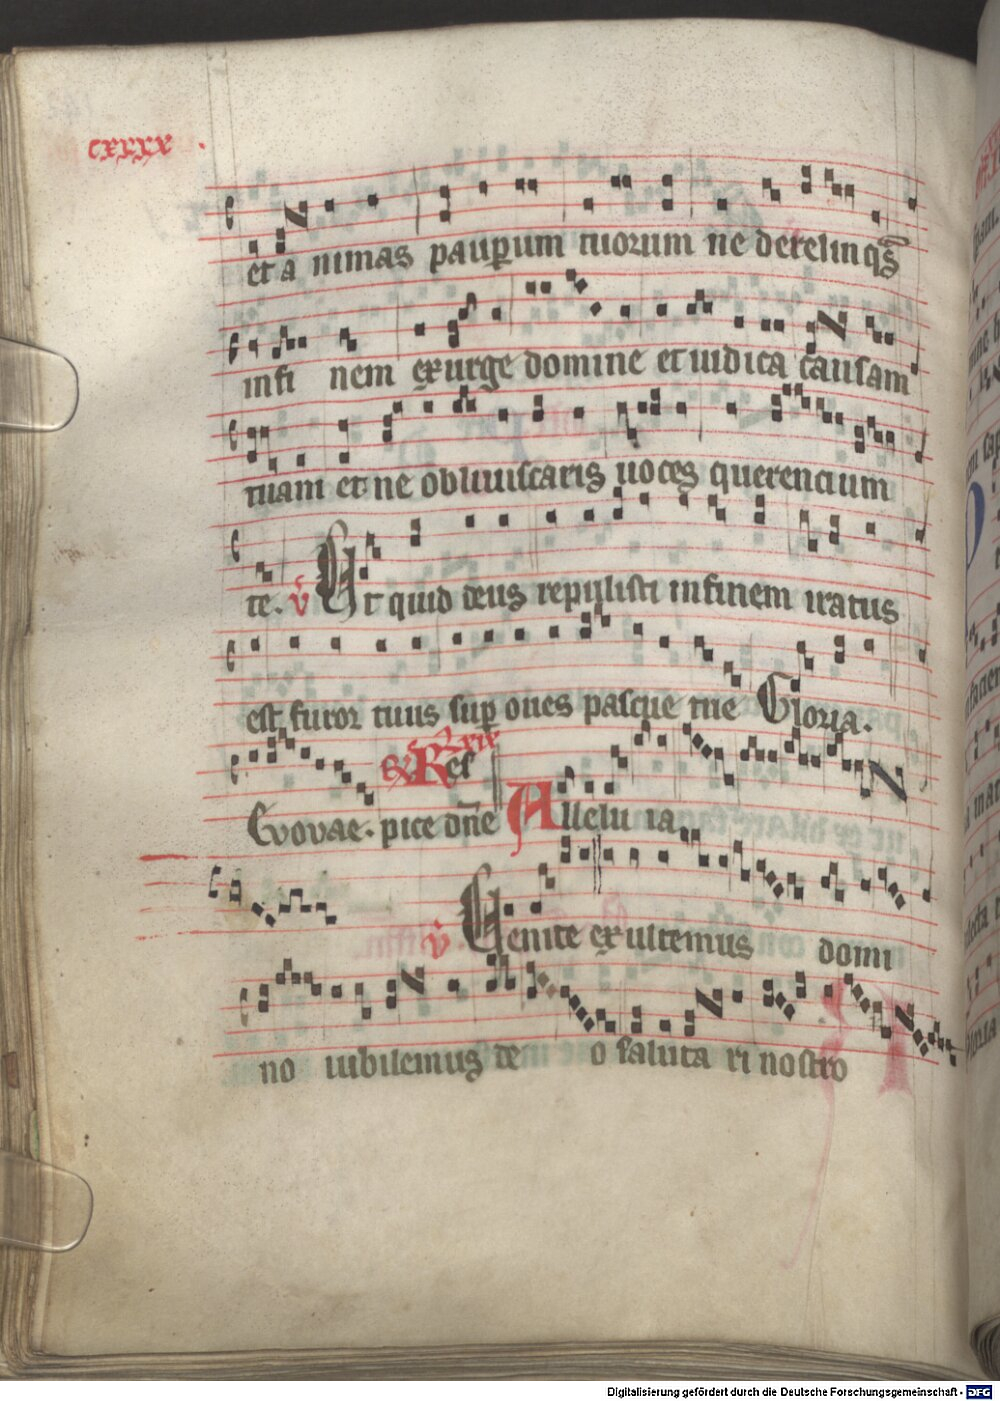 cxxxx.
et a nimas paup̱um tuorum ne derelinq̄s
infi nem exurge domine et iudica causam
tuam et ne obliuiscaris uoces querencium
te. v̄ Ut quid deus repulisti infinem iratus
est furor tuus sup̱ oues pascue tue Gloria.
Res
Evovae. pice dn̄e Alleluia
v̄ Venite exultemus domi
no iubilemus de o saluta ri nostro
Digitalisierung gefördert durch die Deutsche Forschungsgemeinschaft - DFG